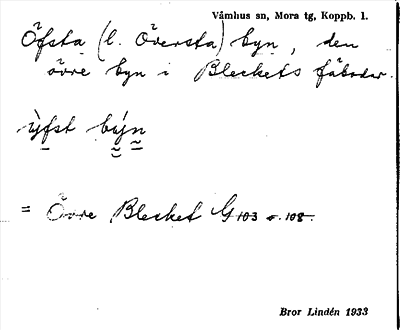 Våmhus sn, Mora tg, Koppb. l.
Öfsta (l. Översta) byn, den
övre byn i Bleckets fäbodar.
ỳfst býn
= Övre Blecket G 103 o. 108.
Bror Lindén 1933